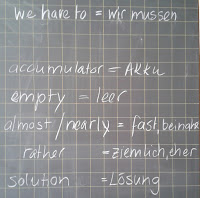 we have to = wir mussen
accumulator = Akku
empty = leer
almost / nearly = fast, beinahe
rather = ziemlich, eher
solution = Lösung